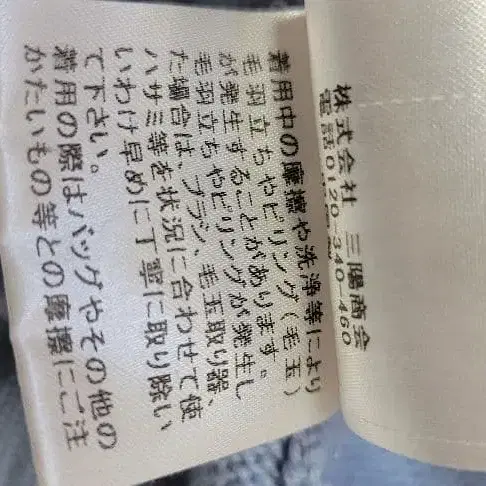 株式会社 三陽商会
電話0120-340-460
着用中の摩擦や洗浄等により
毛羽立ちやピリング(毛玉)
が発生することがあります。
毛羽立ちやピリングが発生し
た場合は、ブラシ、毛玉取り器、
ハサミ等を状況に合わせて使
いわけ早めに丁寧に取り除い
て下さい。
着用の際はバッグやその他の
かたいもの等との摩擦にご注